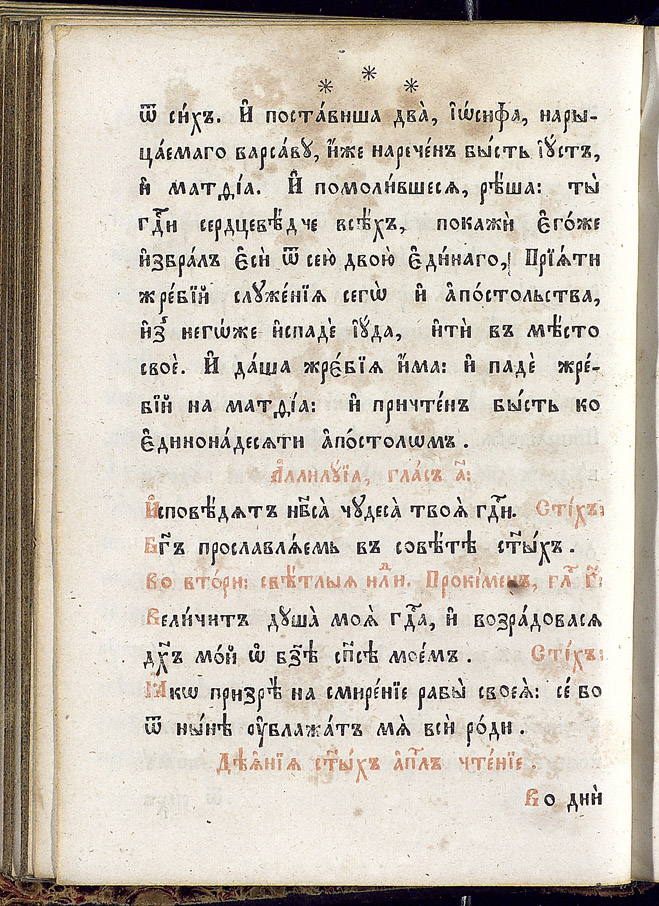 * * *
ѿ си́хъ. И҆ поста́виша два̀, і҆ѡ́сифа, нары-
ца́емаго варса́ву, и҆́же нарече́нъ бы́сть і҆ꙋ́стъ,
и҆ матѳі́а. И҆ помоли́вшеся, рѣ́ша: ты̀
гдⷭ҇и сердцевѣ́дче всѣ́хъ, покажѝ є҆го́же
и҆збра́лъ є҆сѝ ѿ сею̀ двою̀ є҆ди́наго, Прїѧ́ти
жре́бїй служе́нїѧ сегѡ̀ и҆ а҆по́стольства,
и҆з̾ негѡ́же и҆спадѐ і҆ꙋ́да, и҆тѝ въ мѣ́сто
своѐ. И҆ да́ша жре́бїѧ и҆́ма: и҆ падѐ жре́-
бїй на матѳі́а: и҆ причте́нъ бы́сть ко
є҆динона́десѧти а҆по́столѡмъ.
А҆ллилꙋ́їа, гла́съ а҃:
И҆сповѣ́дѧтъ нб҃са̀ чꙋдеса̀ твоѧ̀ гдⷭ҇и. Сті́хъ:
Бг҃ъ прославлѧ́емь въ совѣ́тѣ ст҃ы́хъ.
Во вто́рн: свѣ́тлыѧ нлⷣи. Прокі́менъ, глⷭ҇ г҃:
Вели́читъ дꙋша̀ моѧ̀ гдⷭ҇а, и҆ возра́довасѧ
дх҃ъ мо́й ѡ҆ бз҃ѣ сп҃сѣ мое́мъ. Сті́хъ:
Ꙗ҆́кѡ призрѣ̀ на смире́нїе рабы̀ своеѧ̀: се́ бо
ѿ ны́нѣ ᲂу҆блажа́тъ мѧ̀ всѝ ро́ди.
Дѣѧ́нїѧ ст҃ы́хъ а҆пⷭ҇лъ чте́нїе
Во днѝ